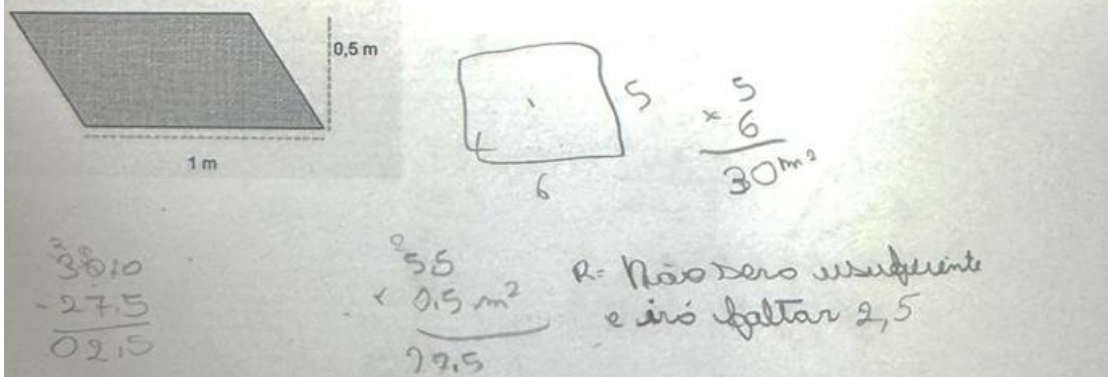 0,5 m
1 m
5
6
5
× 6
30 m²
30,0
- 27,5
02,5
55
× 0,5 m²
27,5
R= Não sero usuficiente
e iró faltar 2,5